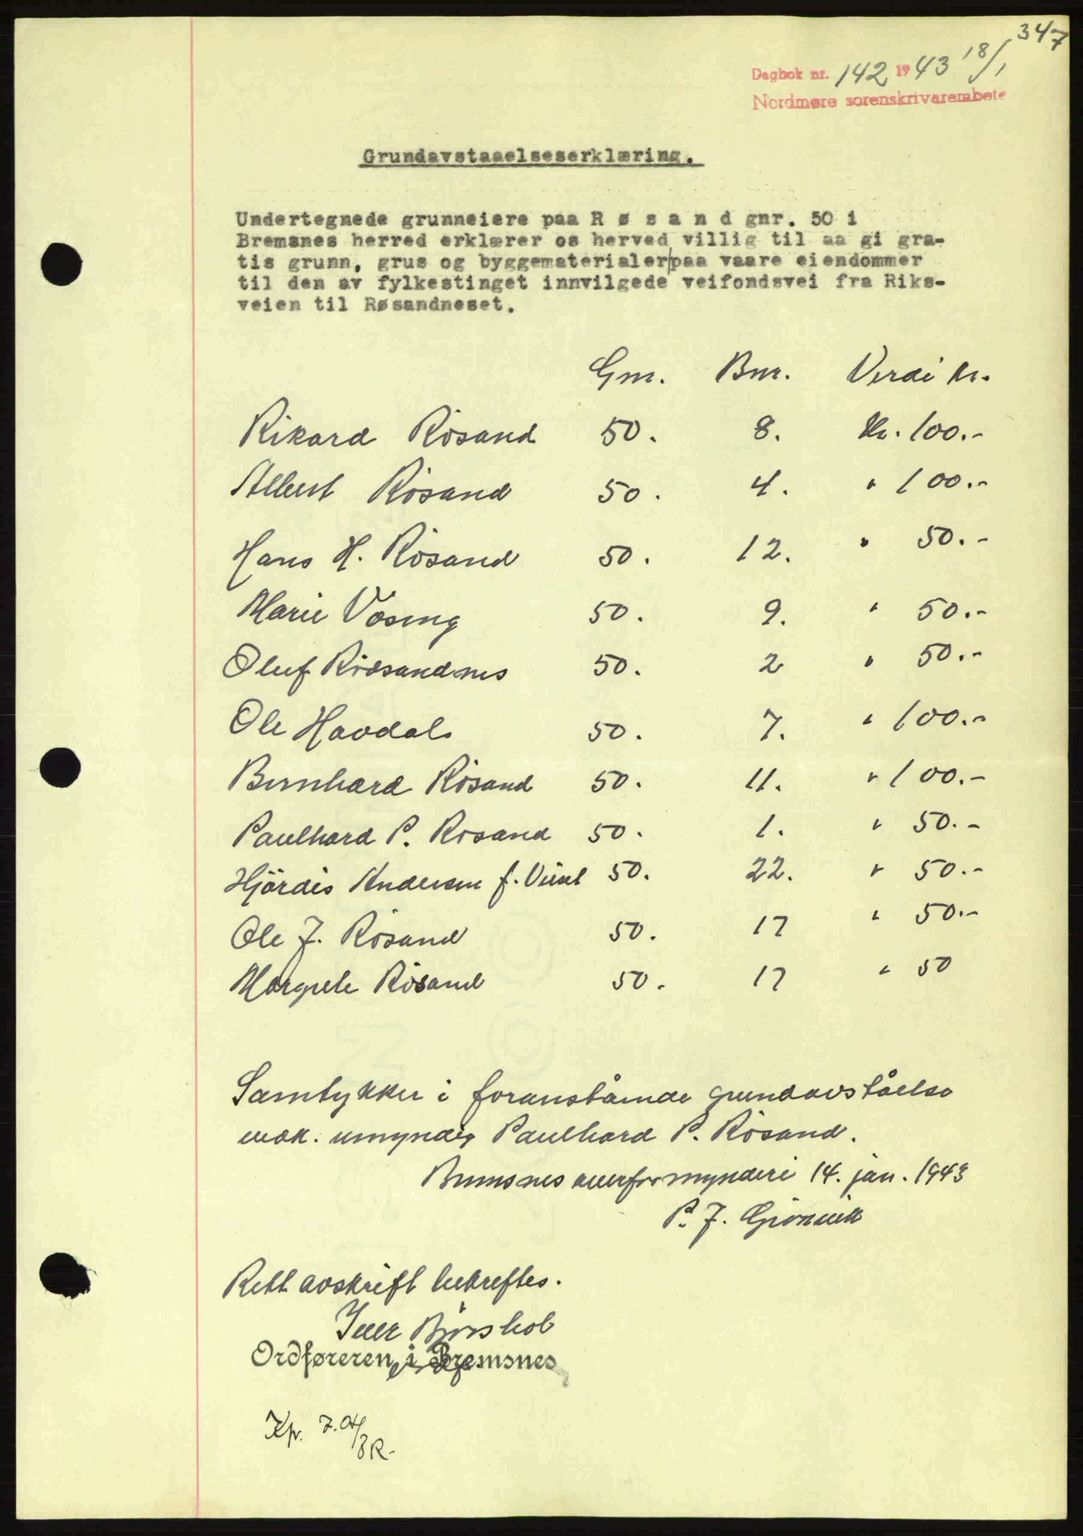 347
Dagbok nr. 142 1943 18/1
Nordmøre sorenskrivarembete
Grundavstaaelseserklæring.
Undertegnede grunneiere paa R ø s a n d gnr. 50 i
Bremsnes herred erklærer os herved villig til aa gi gra-
tis grunn, grus og byggematerialer paa vaare eiendommer
til den av fylkestinget innvilgede veifondsvei fra Riks-
veien til Røsandneset.
Gnr. Bnr. Verdi kr.
Rikard Rösand 50. 8. Kr. 100.-
Albert Rösand 50. 4. " 100.-
Hans H. Rösand 50. 12. " 50.-
Marie Vaseng 50. 9. " 50.-
Oluf Rösandnes 50. 2 " 50.-
Ole Havdal 50. 7. " 100.-
Bernhard Rösand 50. 11. " 100.-
Paulhard P. Rosand 50. 1. " 50.-
Hjördis Andersen f. 50. 22. " 50.-
Ole J. Rösand 50. 17 " 50.-
Margrete Rösand 50. 17 " 50
Samtykker i foranstående grundavståelse
vedk. umyndig Paulhard P. Rösand.
Bremsnes overformynderi 14. jan. 1943
P. J.
Rett avskrift bekreftes.
Iver
Ordføreren i Bremsnes